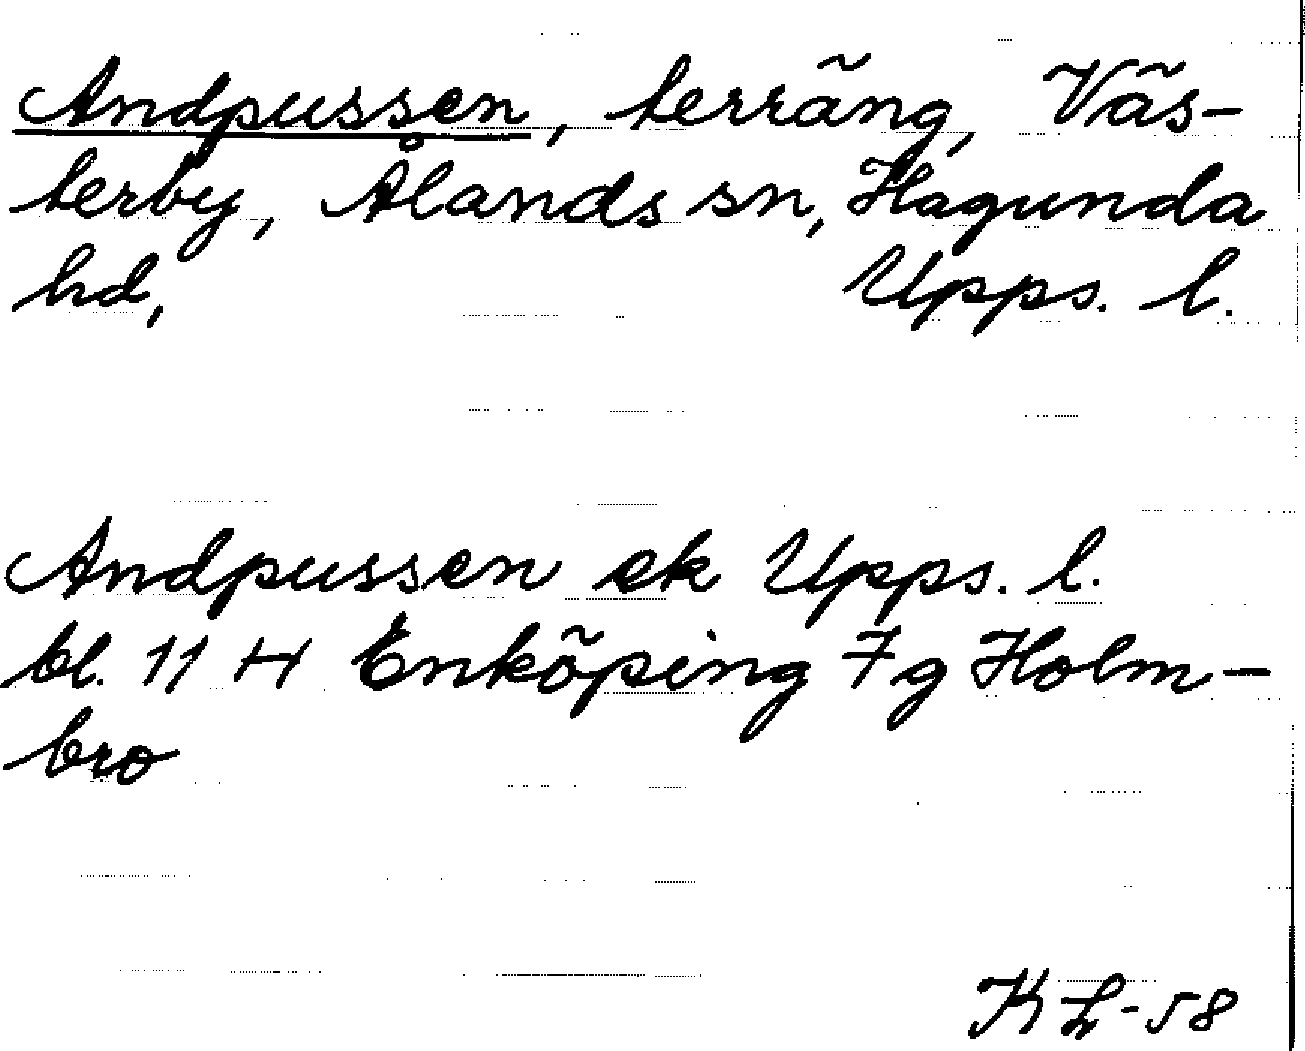 Andpussen, terräng, Väs-
terby, Ålands sn, Hagunda
hd, Upps. l.
Andpussen ek Upps. l.
bl. 11 H Enköping 7g Holm-
bro
KL-58